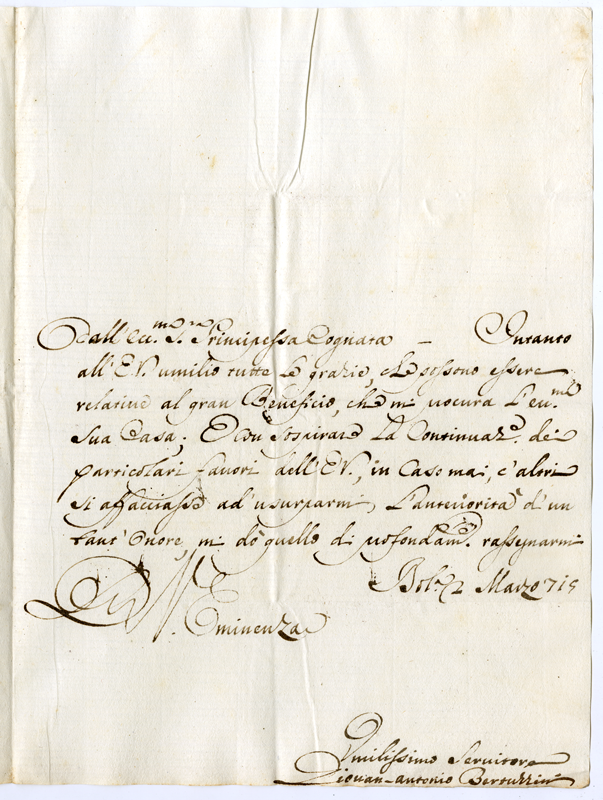 dall'Ecc.ma S.ra Principessa Cognata — Intanto
all'E V. umilio tutte le grazie, che possono essere
relative al gran Beneficio, che mi procura l'em.ma
sua Casa; E con sospirare la Continuaz.e dei
particolari favori dell'E V., in caso mai, c'altri
si affacciasse ad'usurparmi, l'anteriorità d'un
tant'Onore, mi do quello di profondam.te rassegnarmi
Bol.a 2 Marzo 715
Di V. Eminenza
Umilissimo Servitore
Giovan-Antonio Bertuzzini